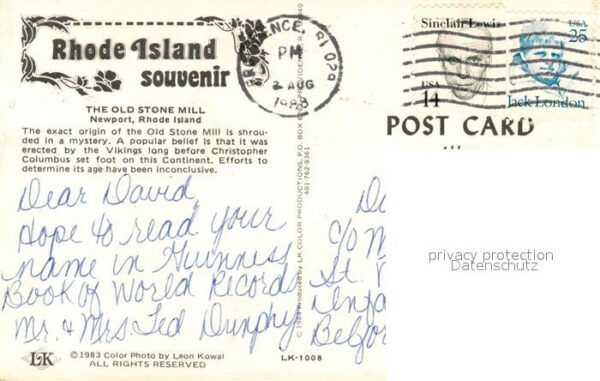 Rhode Island
souvenir
PROVIDENCE, RI
PM
2 AUG
1988
Sinclair Lewis
USA
14
USA
25
Jack London
POST CARD
THE OLD STONE MILL
Newport, Rhode Island
The exact origin of the Old Stone Mill is shrou-
ded in a mystery. A popular belief is that it was
erected by the Vikings long before Christopher
Columbus set foot on this Continent. Efforts to
determine its age have been inconclusive.
Dear David,
Hope to read your
name in Guinness
Book of World Records
Mr. & Mrs Ted Dunphy
LK
©1983 Color Photo by Leon Kowal
ALL RIGHTS RESERVED
LK-1008
LK COLOR PRODUCTIONS, P.O. BOX
401-762-9361
C/O M
St.
privacy protection
Datenschutz